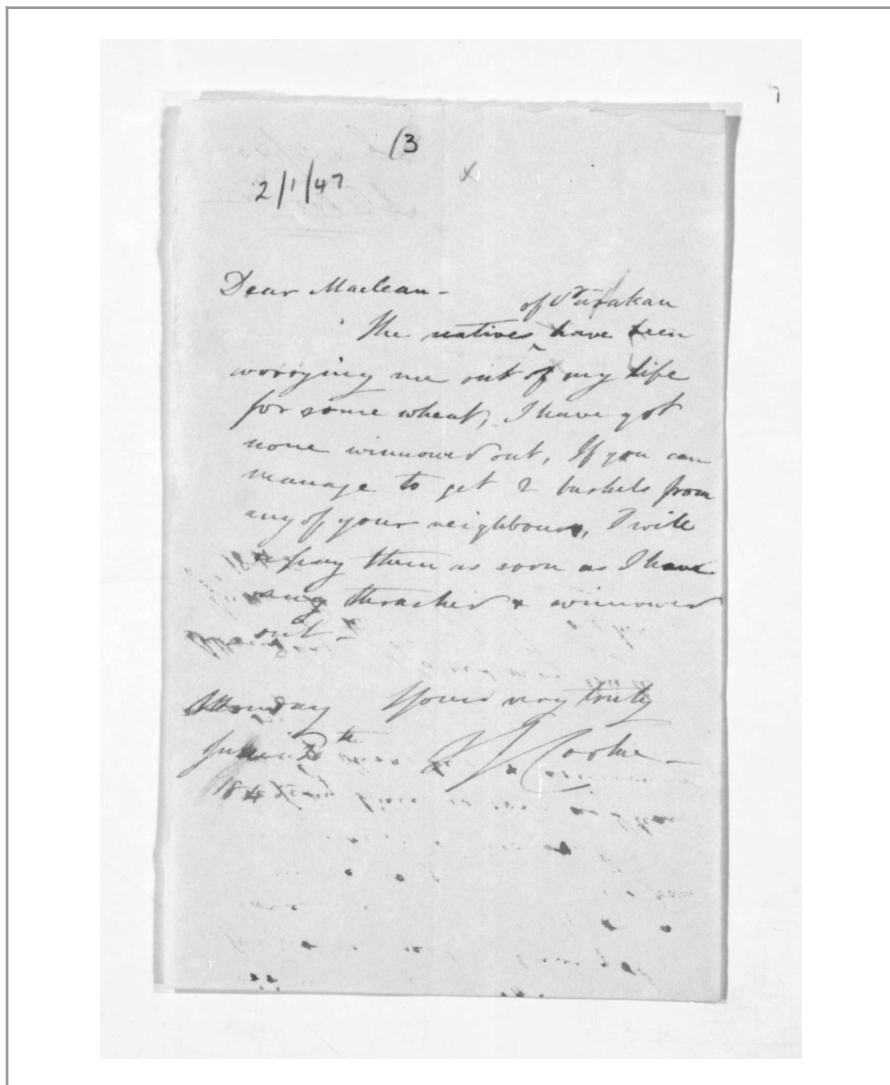 7
(3
2/1/47
x
Dear Maclean -
of Purakau
The natives ^ have been
worrying me out of my life
for some wheat, I have got
none winnowed out, If you can
manage to get 2 bushels from
any of your neighbours, I will
repay them as soon as I have
any thrashed & winnowed
out -
Monday Yours very truly
Cooke -
184